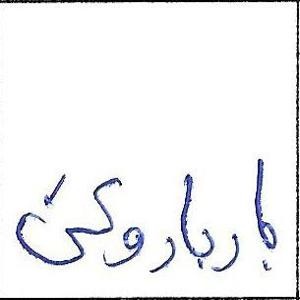 بار بار وکئ